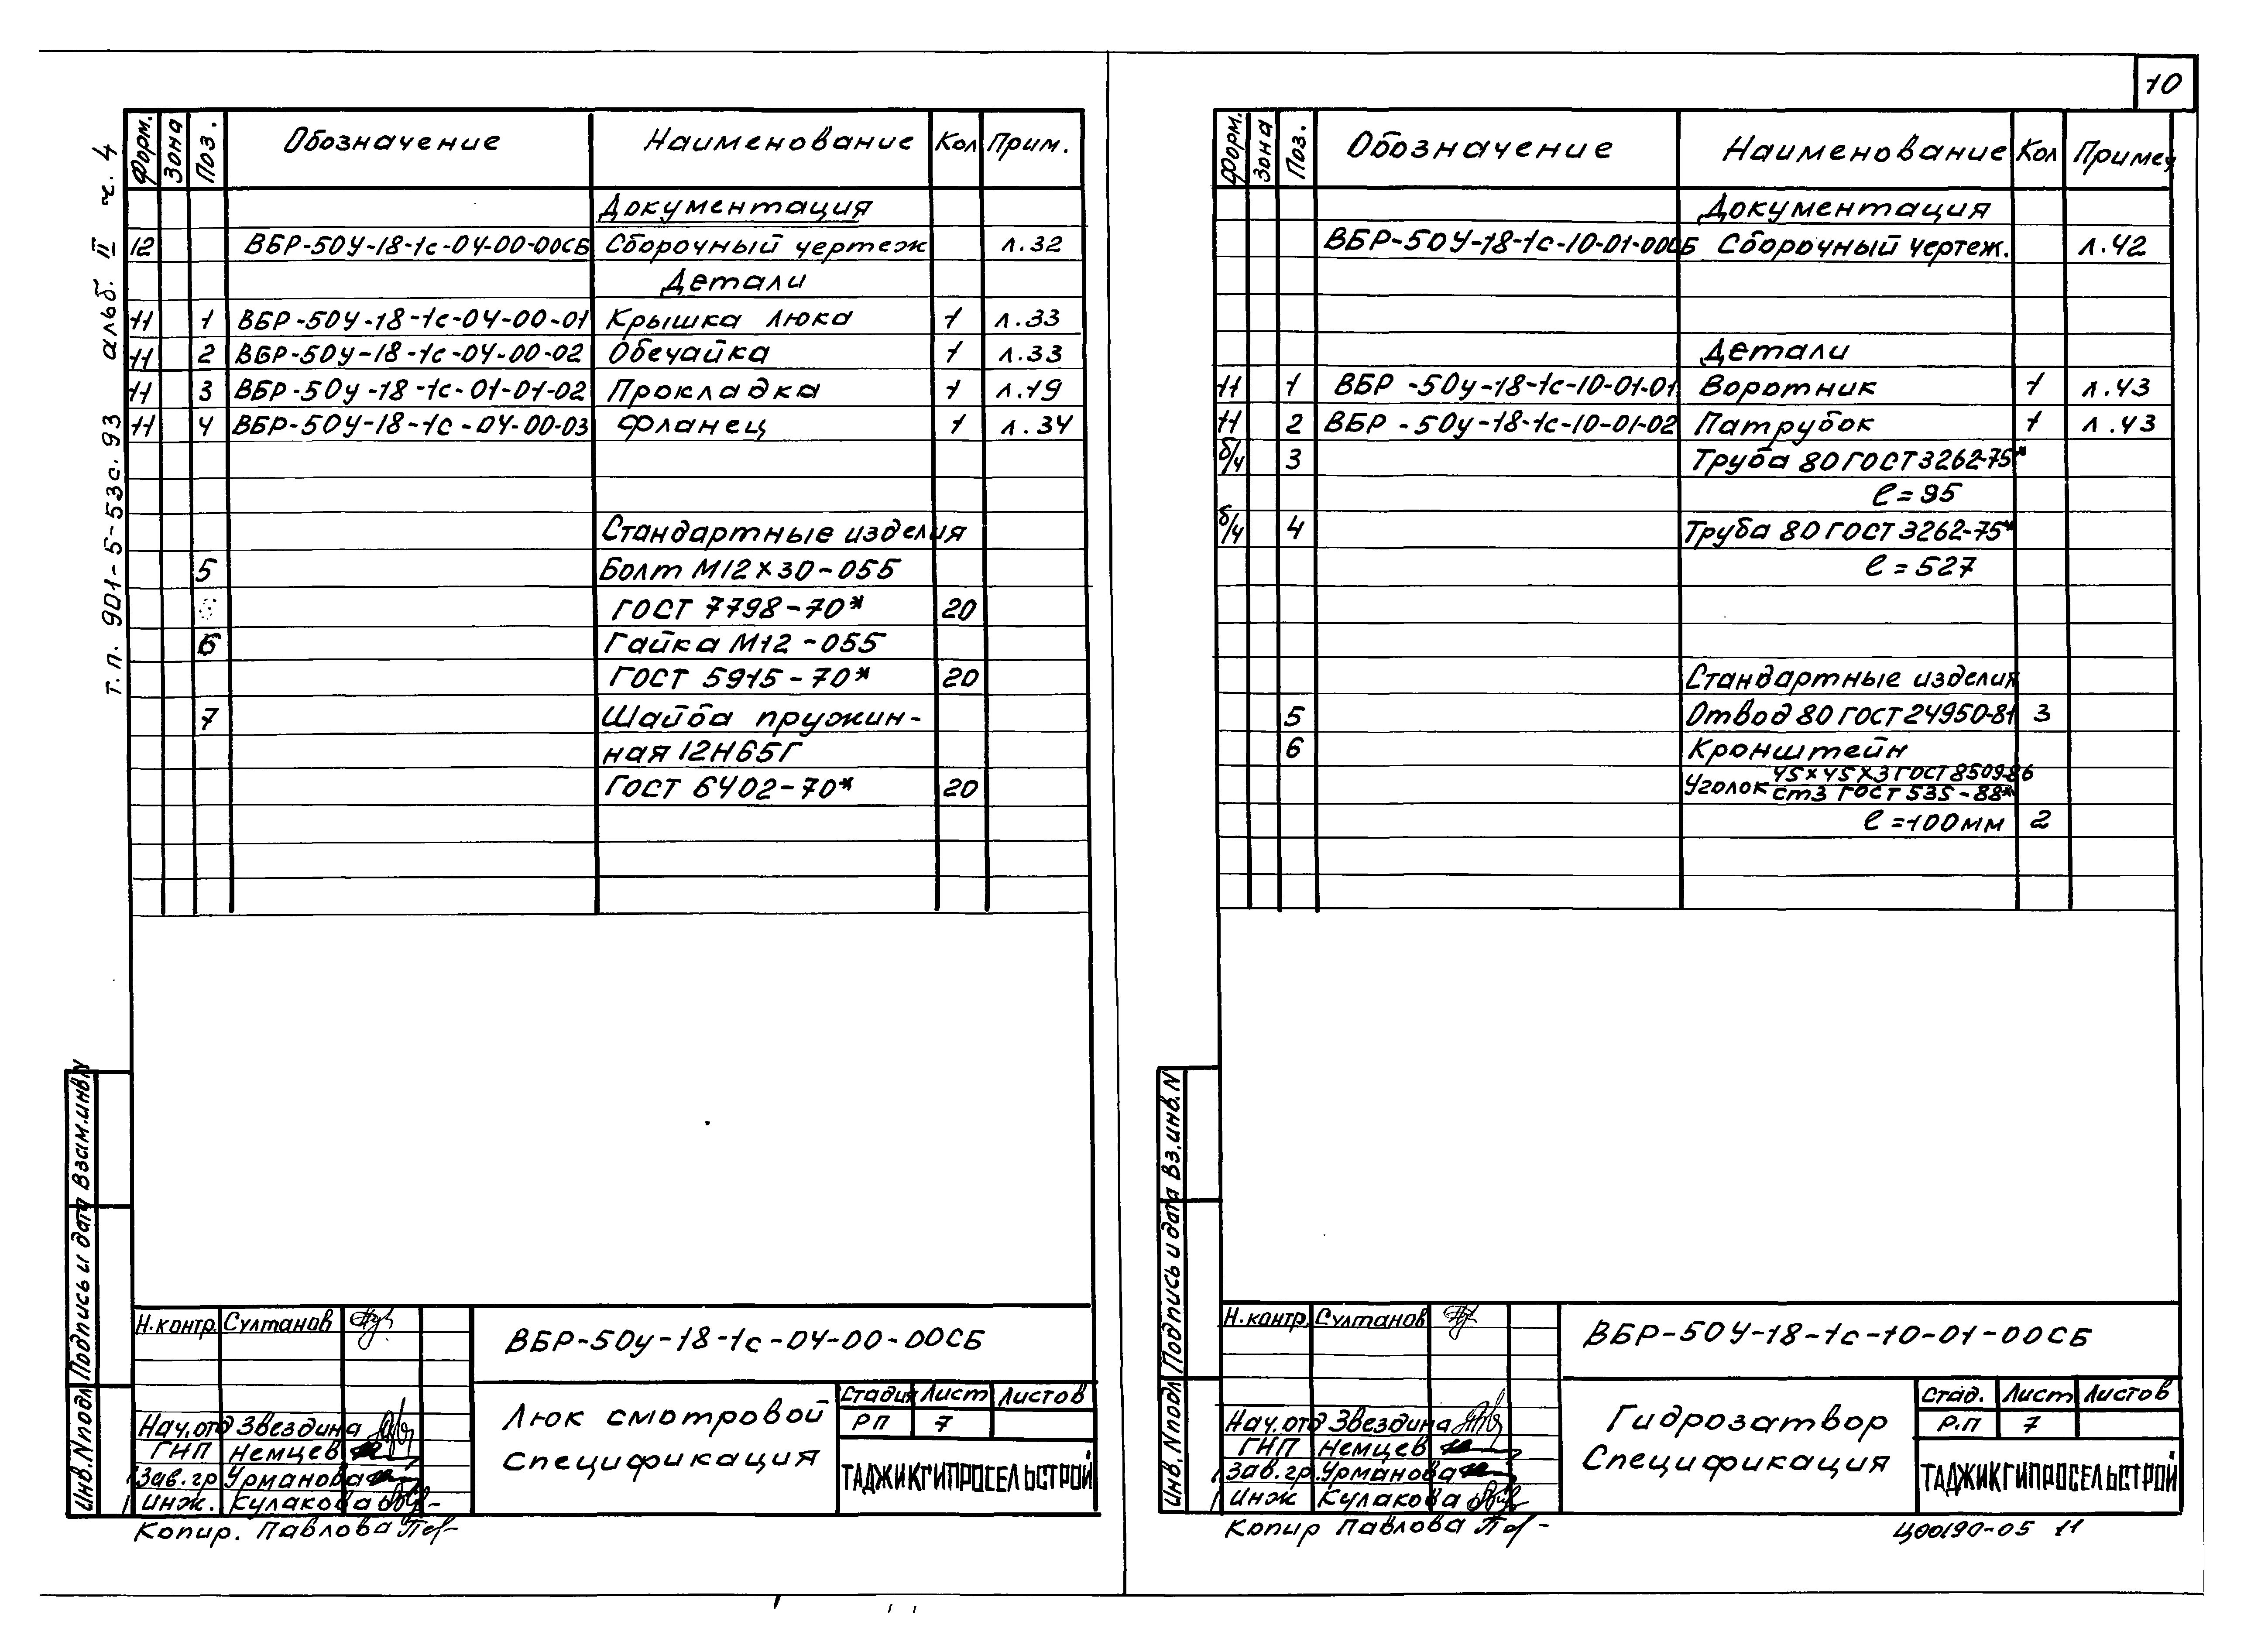 10
т.п. 901-5-53с.93 альб. II ч. 4
Форм. Зона Поз. Обозначение Наименование Кол Прим.
Документация
12 ВБР-50У-18-1с-04-00-00СБ Сборочный чертеж л.32
Детали
11 1 ВБР-50У-18-1с-04-00-01 Крышка люка 1 л.33
11 2 ВБР-50У-18-1с-04-00-02 Обечайка 1 л.33
11 3 ВБР-50у-18-1с-01-01-02 Прокладка 1 л.19
11 4 ВБР-50У-18-1с-04-00-03 Фланец 1 л.34
Стандартные изделия
5 Болт М12×30-055
ГОСТ 7798-70* 20
6 Гайка М12-055
ГОСТ 5915-70* 20
7 Шайба пружин-
ная 12Н65Г
ГОСТ 6402-70* 20
Инв.N подл Подпись и дата Взам.инв.N
Н.контр. Султанов
ВБР-50у-18-1с-04-00-00СБ
Люк смотровой
Спецификация
Стадия Лист Листов
РП 7
Нач.отд Звездина
ГНП Немцев
Зав.гр Урманова
Инж. Кулакова
ТАДЖИКГИПРОСЕЛЬСТРОЙ
Копир. Павлова
Форм. Зона Поз. Обозначение Наименование Кол Примеч
Документация
ВБР-50У-18-1с-10-01-00СБ Сборочный чертеж. л.42
Детали
11 1 ВБР-50у-18-1с-10-01-01 Воротник 1 л.43
11 2 ВБР-50у-18-1с-10-01-02 Патрубок 1 л.43
б/ч 3 Труба 80 ГОСТ 3262-75*
ℓ=95
б/ч 4 Труба 80 ГОСТ 3262-75*
ℓ=527
Стандартные изделия
5 Отвод 80 ГОСТ 24950-81 3
6 Кронштейн
45×45×3 ГОСТ 8509-86
Уголок ст3 ГОСТ 535-88*
ℓ=100мм 2
Инв.N подл Подпись и дата Вз.инв.N
Н.контр. Султанов
ВБР-50У-18-1с-10-01-00СБ
Гидрозатвор
Спецификация
Стад. Лист Листов
Р.П 7
Нач.отд Звездина
ГНП Немцев
Зав.гр. Урманова
Инж Кулакова
ТАДЖИКГИПРОСЕЛЬСТРОЙ
Копир Павлова
Ц00190-05 11